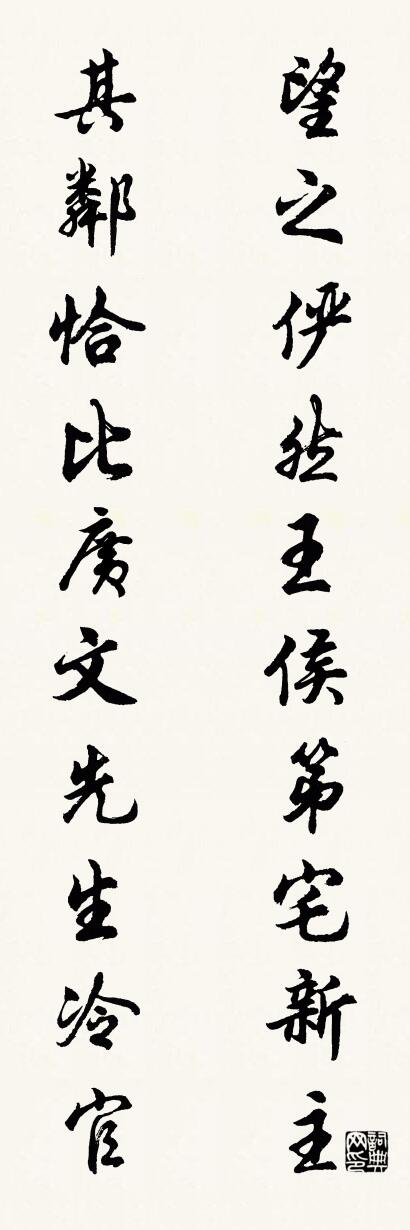 望之俨然王侯第宅新主
其鄰恰比廣文先生冷官
詞典網印